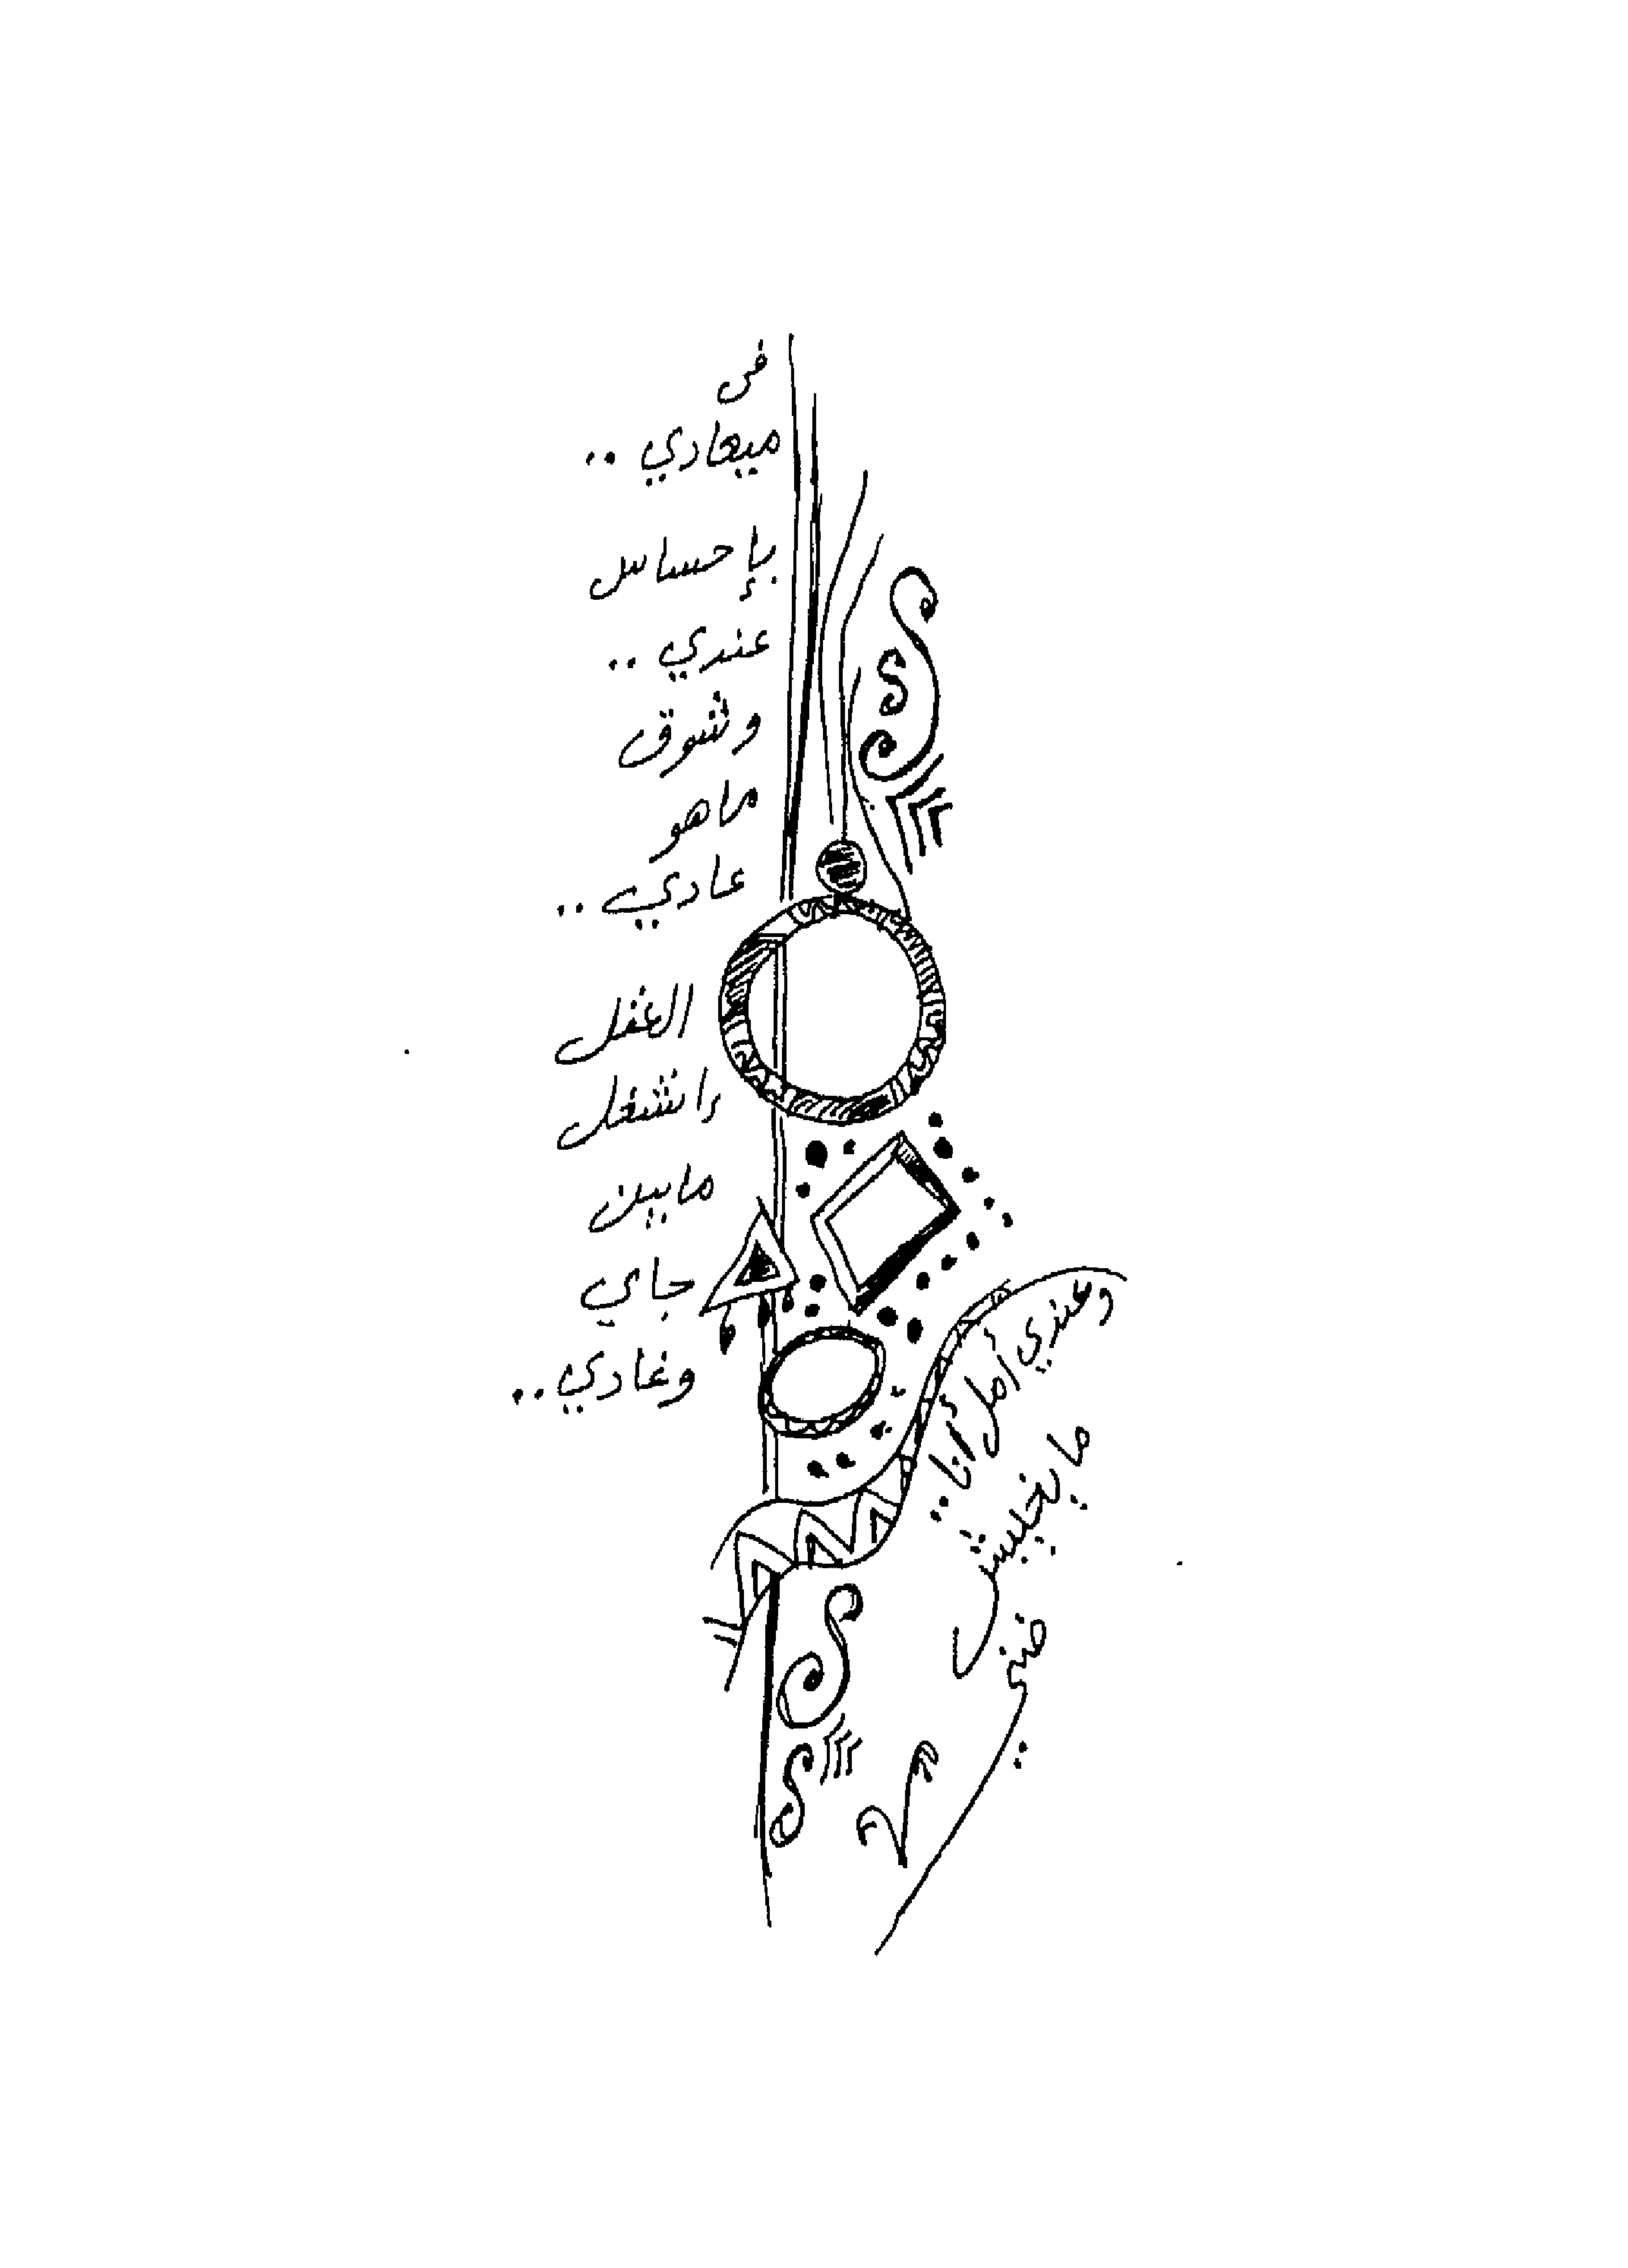 في
ميعادي ..
بإحساس
عندي ..
وشوق
ماهو
عادي ..
العقل
انشغل
مابين
جاي
وغادي ..
وعندي أمل أنا ..
ما يخيبش
ظني